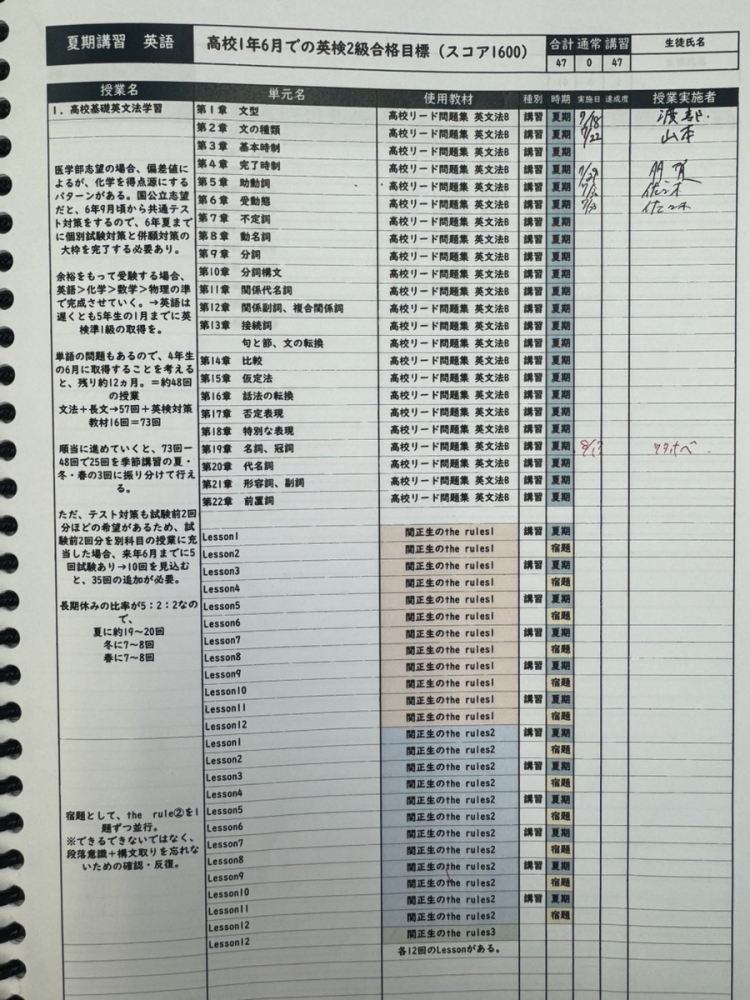 夏期講習 英語 高校1年6月での英検2級合格目標（スコア1600） 合計 通常 講習 生徒氏名
47 0 47
授業名 単元名 使用教材 種別 時期 実施日 達成度 授業実施者
1. 高校基礎英文法学習 第1章 文型 高校リード問題集 英文法B 講習 夏期 7/18 渡部
第2章 文の種類 高校リード問題集 英文法B 講習 夏期 7/22 山本
第3章 基本時制 高校リード問題集 英文法B 講習 夏期
第4章 完了時制 高校リード問題集 英文法B 講習 夏期
第5章 助動詞 高校リード問題集 英文法B 講習 夏期 佐々木
第6章 受動態 高校リード問題集 英文法B 講習 夏期 佐々木
第7章 不定詞 高校リード問題集 英文法B 講習 夏期
第8章 動名詞 高校リード問題集 英文法B 講習 夏期
第9章 分詞 高校リード問題集 英文法B 講習 夏期
第10章 分詞構文 高校リード問題集 英文法B 講習 夏期
第11章 関係代名詞 高校リード問題集 英文法B 講習 夏期
第12章 関係副詞、複合関係詞 高校リード問題集 英文法B 講習 夏期
第13章 接続詞 高校リード問題集 英文法B 講習 夏期
句と節、文の転換 高校リード問題集 英文法B 講習 夏期
第14章 比較 高校リード問題集 英文法B 講習 夏期
第15章 仮定法 高校リード問題集 英文法B 講習 夏期
第16章 話法の転換 高校リード問題集 英文法B 講習 夏期
第17章 否定表現 高校リード問題集 英文法B 講習 夏期
第18章 特別な表現 高校リード問題集 英文法B 講習 夏期
第19章 名詞、冠詞 高校リード問題集 英文法B 講習 夏期 8/13 ワタナベ
第20章 代名詞 高校リード問題集 英文法B 講習 夏期
第21章 形容詞、副詞 高校リード問題集 英文法B 講習 夏期
第22章 前置詞 高校リード問題集 英文法B 講習 夏期
医学部志望の場合、偏差値に
よるが、化学を得点源にする
パターンがある。国公立志望
だと、6年9月頃から共通テス
ト対策をするので、6年夏まで
に個別試験対策と併願対策の
大枠を完了する必要あり。
余裕をもって受験する場合、
英語>化学>数学>物理の準
で完成させていく。→英語は
遅くとも5年生の1月までに英
検準1級の取得を。
単語の問題もあるので、4年生
の6月に取得することを考える
と、残り約12ヵ月。＝約48回
の授業
文法＋長文→57回＋英検対策
教材16回＝73回
順当に進めていくと、73回ー
48回で25回を季節講習の夏・
冬・春の3回に振り分けて行え
る。
ただ、テスト対策も試験前2回
分ほどの希望があるため、試
験前2回分を別科目の授業に充
当した場合、来年6月までに5
回試験あり→10回を見込む
と、35回の追加が必要。
長期休みの比率が5：2：2なの
で、
夏に約19〜20回
冬に7〜8回
春に7〜8回
Lesson1 関正生のthe rules1 講習 夏期
Lesson2 関正生のthe rules1 宿題
Lesson3 関正生のthe rules1 講習 夏期
Lesson4 関正生のthe rules1 宿題
Lesson5 関正生のthe rules1 講習 夏期
Lesson6 関正生のthe rules1 宿題
Lesson7 関正生のthe rules1 講習 夏期
Lesson8 関正生のthe rules1 宿題
Lesson9 関正生のthe rules1 講習 夏期
Lesson10 関正生のthe rules1 宿題
Lesson11 関正生のthe rules1 講習 夏期
Lesson12 関正生のthe rules1 宿題
Lesson1 関正生のthe rules2 講習 夏期
Lesson2 関正生のthe rules2 宿題
Lesson3 関正生のthe rules2 講習 夏期
Lesson4 関正生のthe rules2 宿題
Lesson5 関正生のthe rules2 講習 夏期
Lesson6 関正生のthe rules2 宿題
Lesson7 関正生のthe rules2 講習 夏期
Lesson8 関正生のthe rules2 宿題
Lesson9 関正生のthe rules2 講習 夏期
Lesson10 関正生のthe rules2 宿題
Lesson11 関正生のthe rules2 講習 夏期
Lesson12 関正生のthe rules2 宿題
Lesson12 関正生のthe rules3
各12回のLessonがある。
宿題として、the rule②を1
題ずつ並行。
※できるできないではなく、
段落意識＋構文取りを忘れな
いための確認・反復。